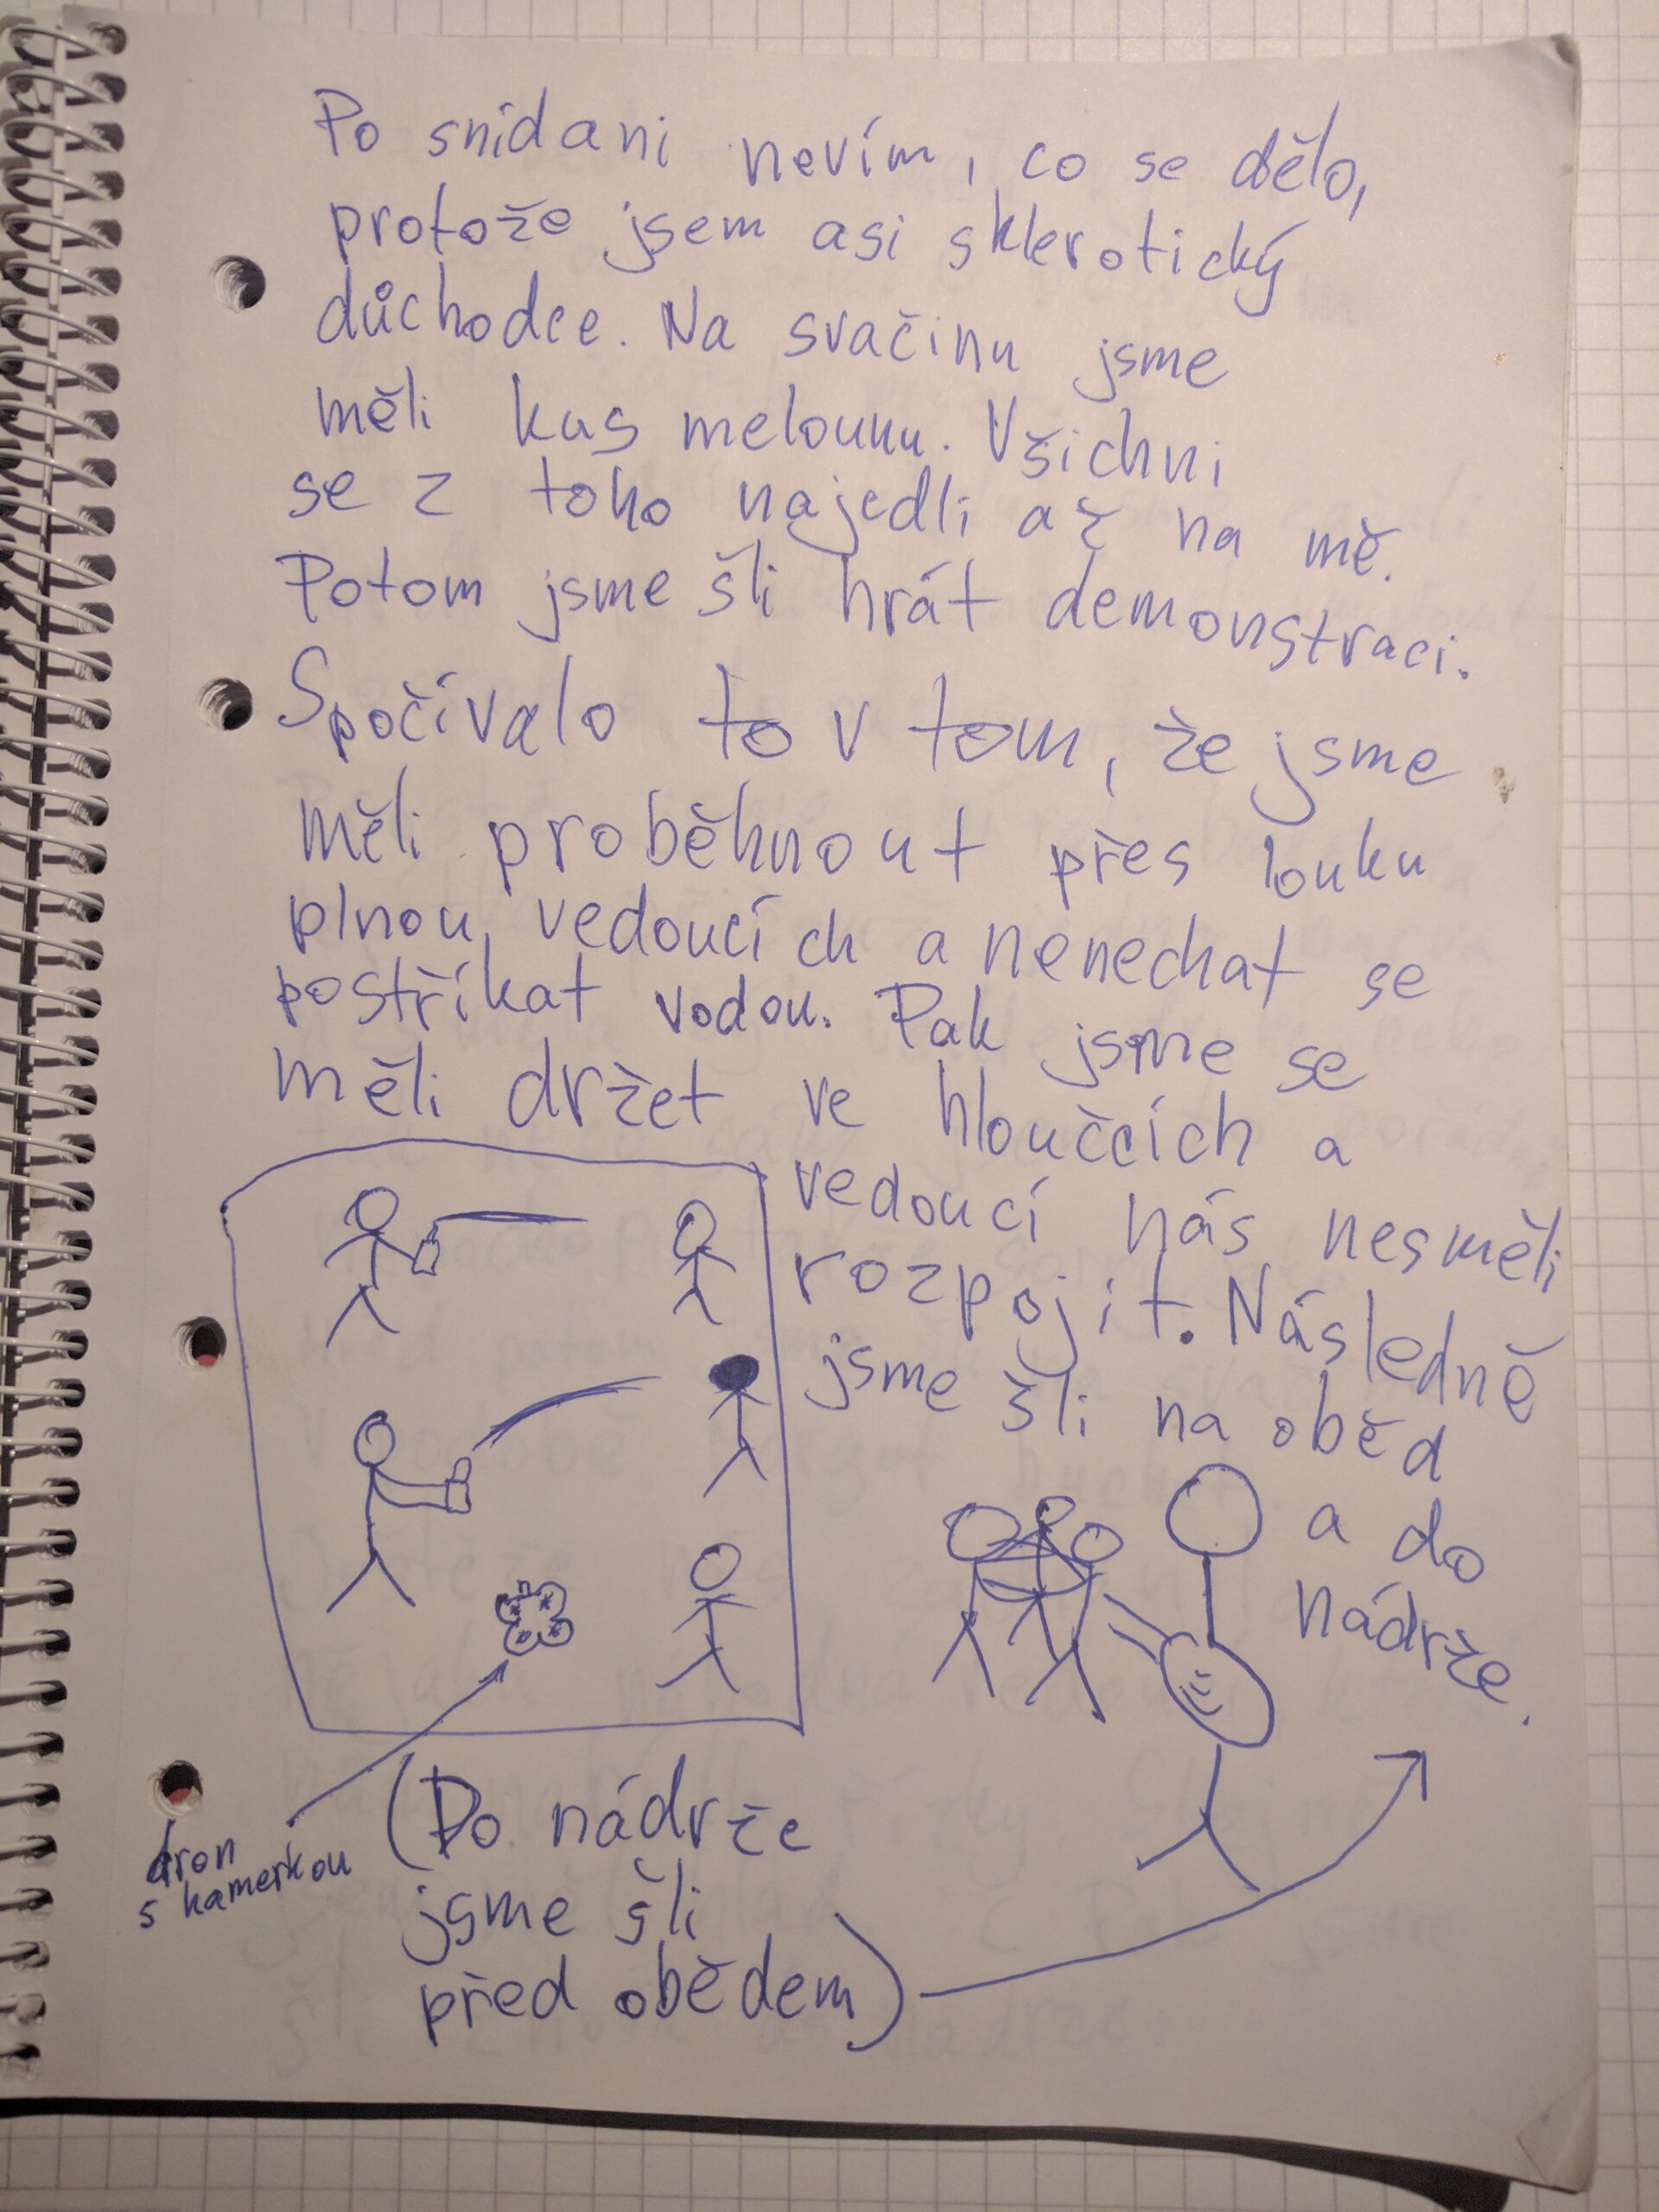 Po snídani nevím, co se dělo,
protože jsem asi sklerotický
důchodce. Na svačinu jsme
měli kus melounu. Všichni
se z toho najedli až na mě.
Potom jsme šli hrát demonstraci.
Spočívalo to v tom, že jsme
měli proběhnout přes louku
plnou vedoucích a nenechat se
postříkat vodou. Pak jsme se
měli držet ve hloučcích a
vedoucí nás nesměli
rozpojit. Následně
jsme šli na oběd
a do
nádrže.
(Do nádrže
jsme šli
před obědem)
dron
s kamerkou